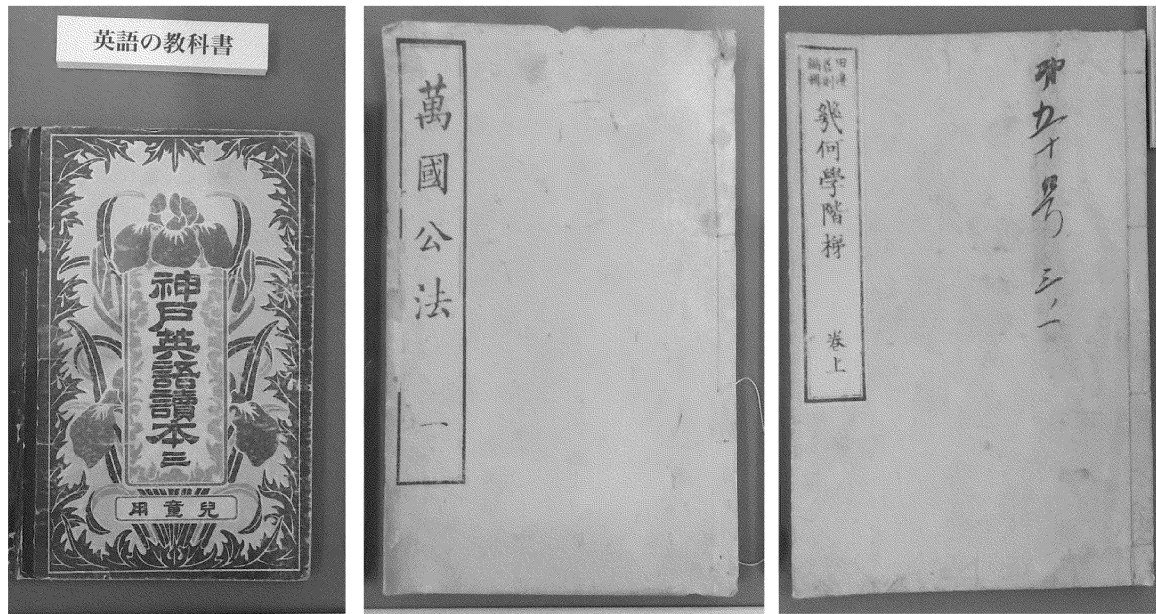 英語の教科書
神戸英語讀本三
兒童用
萬國公法
一
幾何學階梯
卷上
第五十号 三ノ一